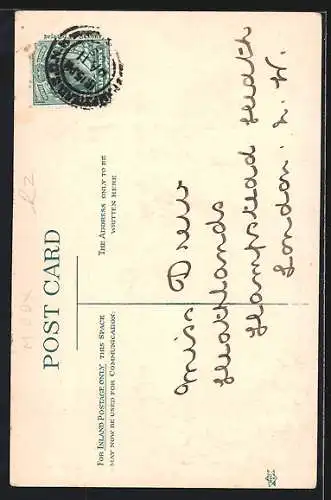 POST CARD
FOR INLAND POSTAGE ONLY, THIS SPACE
MAY NOW BE USED FOR COMMUNICATION:
THE ADDRESS ONLY TO BE
WRITTEN HERE
Miss Drew
Heathlands
Hampstead Heath
London. N. W.
R2